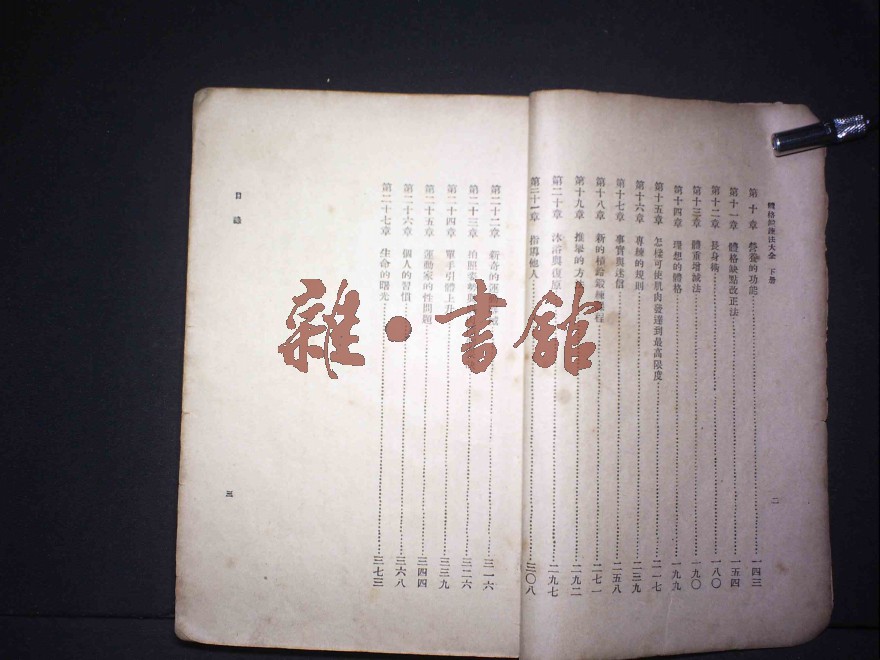 體格鍛鍊法大全 下册
第十章 營養的功能 一四三
第十一章 體格缺點改正法 一五四
第十二章 長身術 一八〇
第十三章 體重增減法 一九〇
第十四章 理想的體格 一九九
第十五章 怎樣可使肌肉發達到最高限度 二一七
第十六章 專練的規則 二三九
第十七章 事實與迷信 二五八
第十八章 新的槓鈴鍛鍊課程 二七一
第十九章 推舉的方 二九二
第二十章 沐浴與復原 二九七
第二十一章 指導他人 三〇八
二
第二十二章 新奇的運 三一六
第二十三章 拍照姿勢 三二六
第二十四章 單手引體上升 三三九
第二十五章 運動家的性問題 三四四
第二十六章 個人的習慣 三六八
第二十七章 生命的曙光 三七三
目錄
三
雜·書館